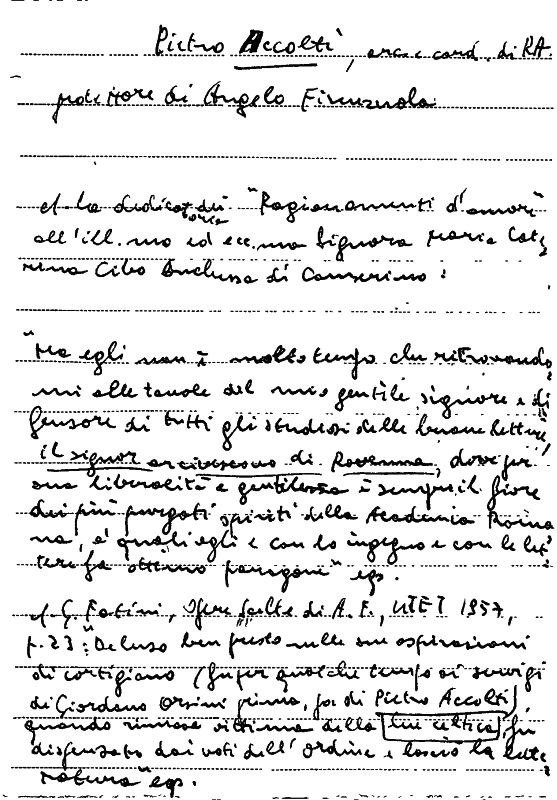 Pietro Accolti, arc. e card. di RA.
protettore di Angelo Firenzuola
cf. la dedicatoria dei "Ragionamenti d'amore"
all'ill.mo ed ecc.ma Signora Maria Cate
rina Cibo Duchessa di Camerino:
"Ma egli non è molto tempo che ritrovando
mi alle tavole del mio gentile signore e di
fensore di tutti gli studiosi delle buone lettere,
il signor arcivescovo di Ravenna, dove per
sua liberalità e gentilezza è sempre il fiore
dei più purgati spiriti della Academia Roma
na, a' quali egli e con lo ingegno e con le let
tere fa ottimo paragone" egs.
cf. G. Fatini, Opere scelte di A. F., UTET 1957,
p. 23: "Deluso ben presto nelle sue aspirazioni
di cortigiano (fu per qualche tempo ai servigi
di Giordano Orsini prima, poi di Pietro Accolti)
quando rimase vittima della lue celtica, fu
dispensato dai voti dell'Ordine e lasciò la lette
ratura" egs.